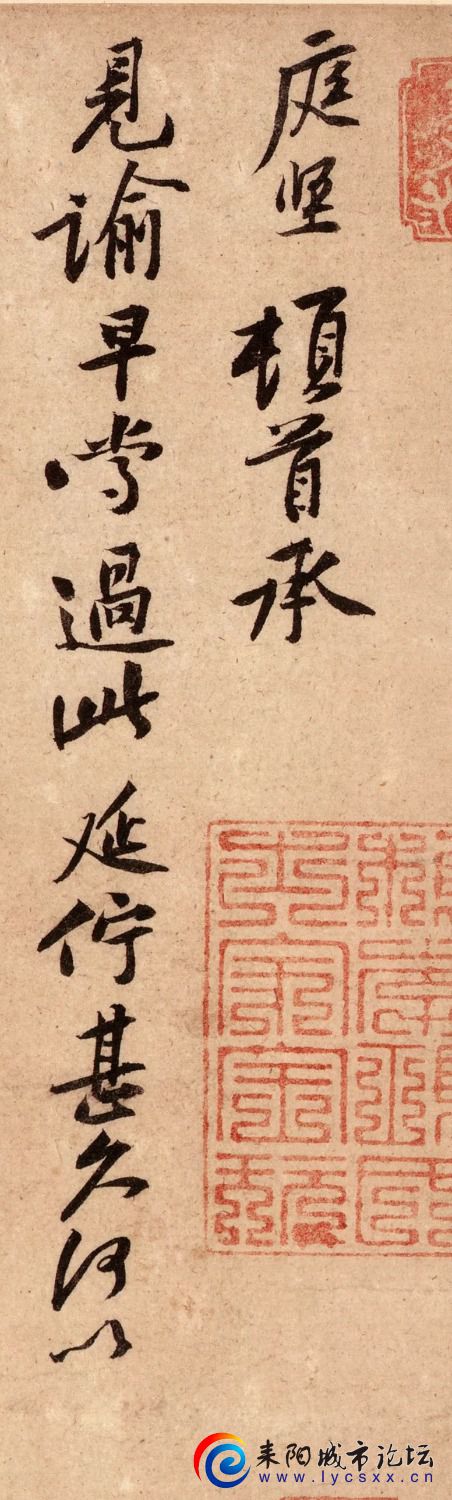 庭坚頓首承
見諭早嘗過此延佇甚久何以
耒阳城市论坛
www.lycsxx.cn